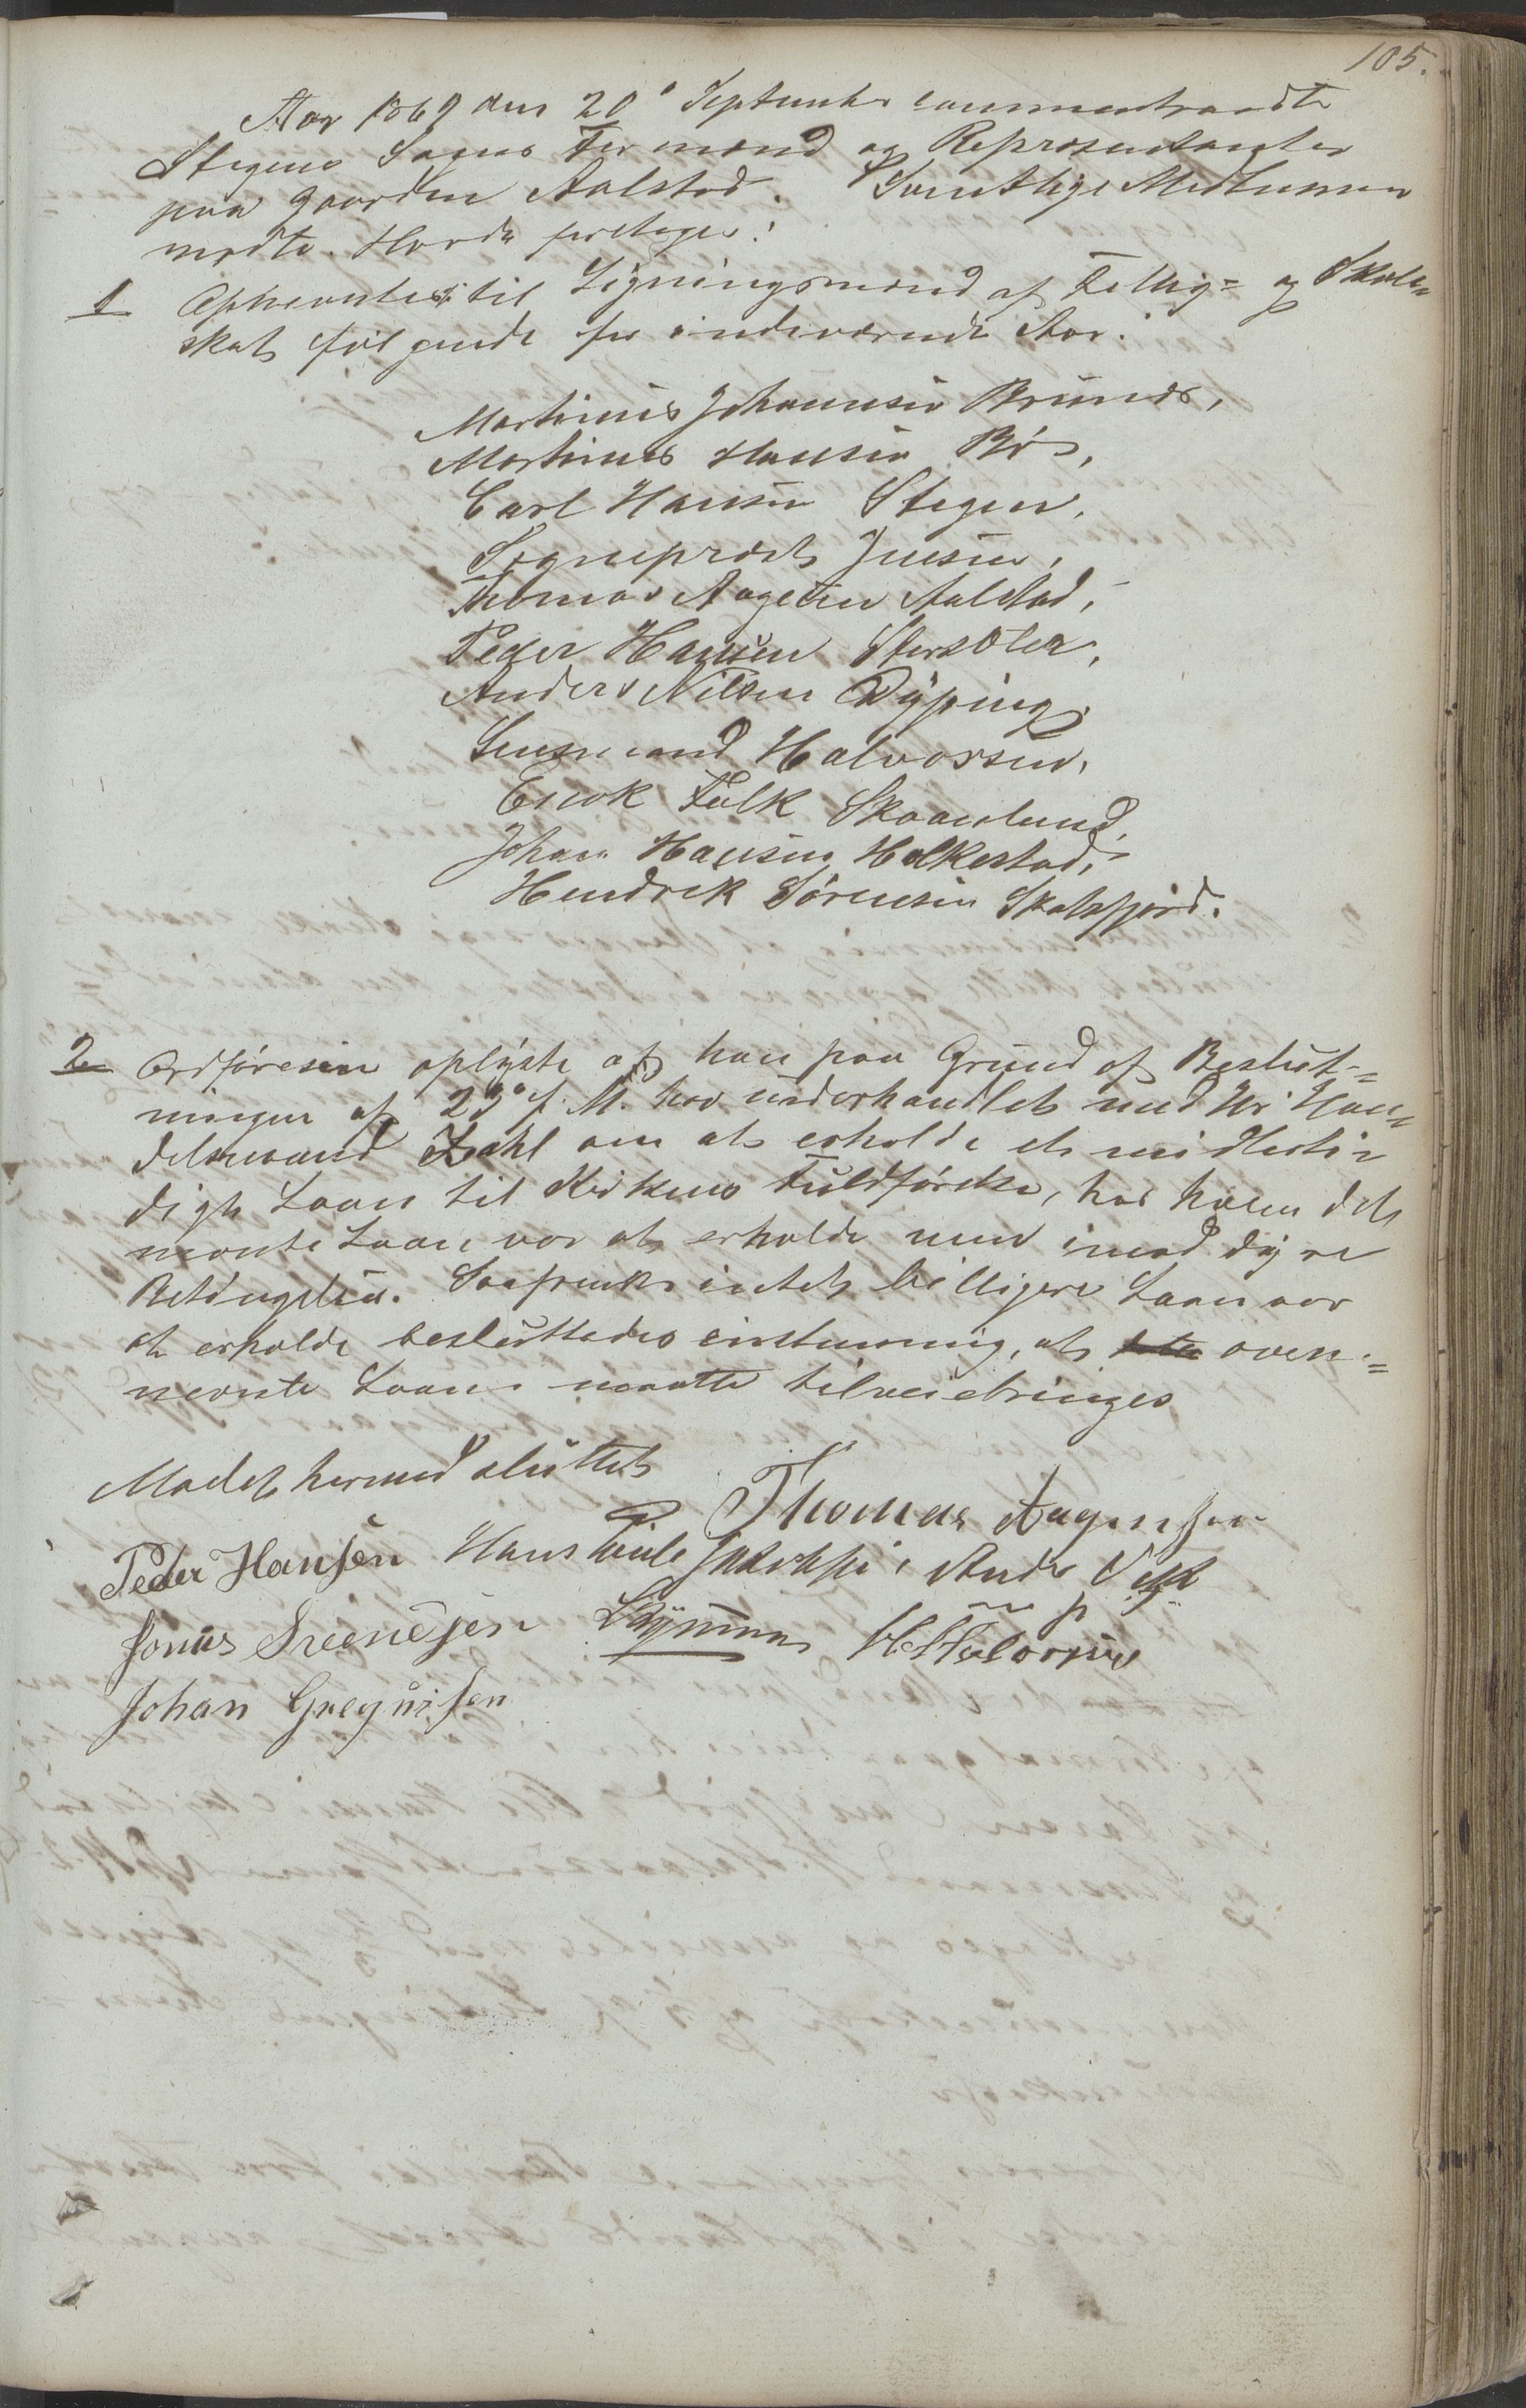 105.
Aar 1869 den 20de September sammentraadte
Stegens Sogns Formænd og Repræsentanter
paa Gaarden Aalstad. Samtlige Medlemmer
mødte. Hvorda foretoges:
1 Opnævntes til Ligningsmænd af Fattig= og Skole=
skat følgende for indeværende Aar:
Martinus Johannesen Brunæs,
Martinus Hansen Bø,
Carl Hansen Stegen,
Sogneprest Jensen,
Thomas Aagesen Aalstad,
Peder Hansen
Anders Nilsen Dyping,
Lensmand Halvorsen,
Enok Falk Skaanlund,
Johan Hansen Holkestad,
Hendrik Sørensen Skotsfjord.
2 Ordføreren oplyste at han paa Grund af Beslut=
ningen af 23de f. M. har underhandlet med Hr Han=
delsmand Zahl om at erholde et midlerti=
digt Laan til Kirkens Fuldførelse, har hvem det
nævnte Laan var at erholde men imod dyre
Betingelser. Saafremt intet billigere Laan var
at erholde besluttedes enstemmig, at oven=
nævnte Laan maatte tilveiebringes
Mødet hermed sluttet
Thomas Aagensen
Peder Hansen Hans
Jonas Sveendsen H Halvorsen
Johan Gregusen